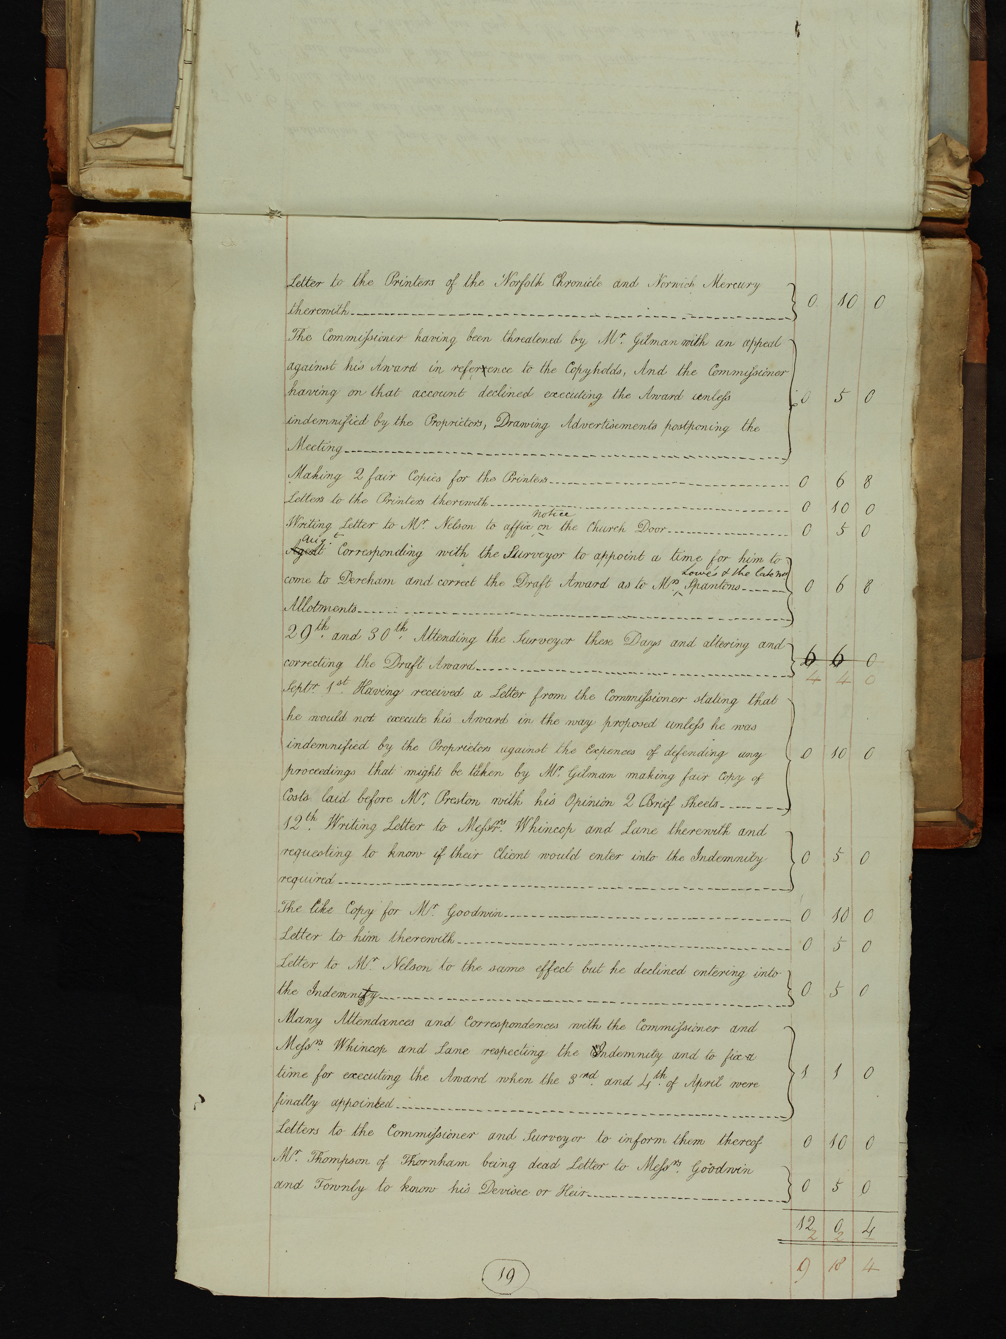 Letter to the Printers of the Norfolk Chronicle and Norwich Mercury
therewith 0 10 0
The Commissioner having been threatened by Mr. Gilman with an appeal
against his Award in reference to the Copyholds, And the Commissioner
having on that account declined executing the Award unless 0 5 0
indemnified by the Proprietors, Drawing Advertisements postponing the
Meeting
Making 2 fair Copies for the Printers 0 6 8
Letters to the Printers therewith 0 10 0
notice
Writing Letter to Mr. Nelson to affix on the Church Door 0 5 0
Augt.
Corresponding with the Surveyor to appoint a time for him to
Lowe's & the late
come to Dereham and correct the Draft Award as to Mrs. Spantons 0 6 8
Allotments
29th. and 30th. Attending the Surveyor these Days and altering and
6 6 0
correcting the Draft Award 4 4 0
Septr. 1st. Having received a Letter from the Commissioner stating that
he would not execute his Award in the way proposed unless he was
indemnified by the Proprietors against the Expences of defending any 0 10 0
proceedings that might be taken by Mr. Gilman making fair Copy of
Costs laid before Mr. Preston with his Opinion 2 Brief Sheets
12th. Writing Letter to Messrs. Whincop and Lane therewith and
requesting to know if their Client would enter into the Indemnity 0 5 0
required
The like Copy for Mr. Goodwin 0 10 0
Letter to him therewith 0 5 0
Letter to Mr. Nelson to the same effect but he declined entering into
the Indemnity 0 5 0
Many Attendances and Correspondences with the Commissioner and
Messrs. Whincop and Lane respecting the Indemnity and to fix a
time for executing the Award when the 3rd. and 4th. of April were 1 1 0
finally appointed
Letters to the Commissioner and Surveyor to inform them thereof 0 10 0
Mr. Thompson of Thornham being dead Letter to Messrs. Goodwin
and Townly to know his Devisee or Heir 0 5 0
12 0 4
2 2
9 18 4
19